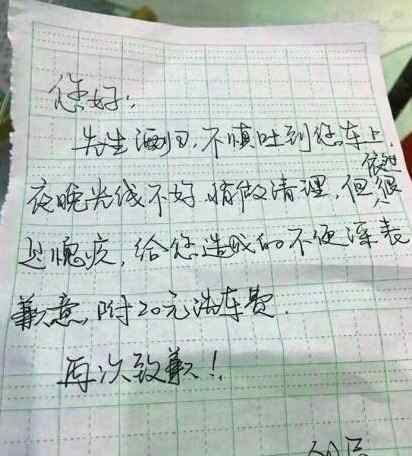 您好:
先生酒归,不慎吐到您车上
夜晚光线不好,稍做清理,但依然很
过愧疚,给您造成的不便深表
歉意,附20元洗车费.
再次致歉!